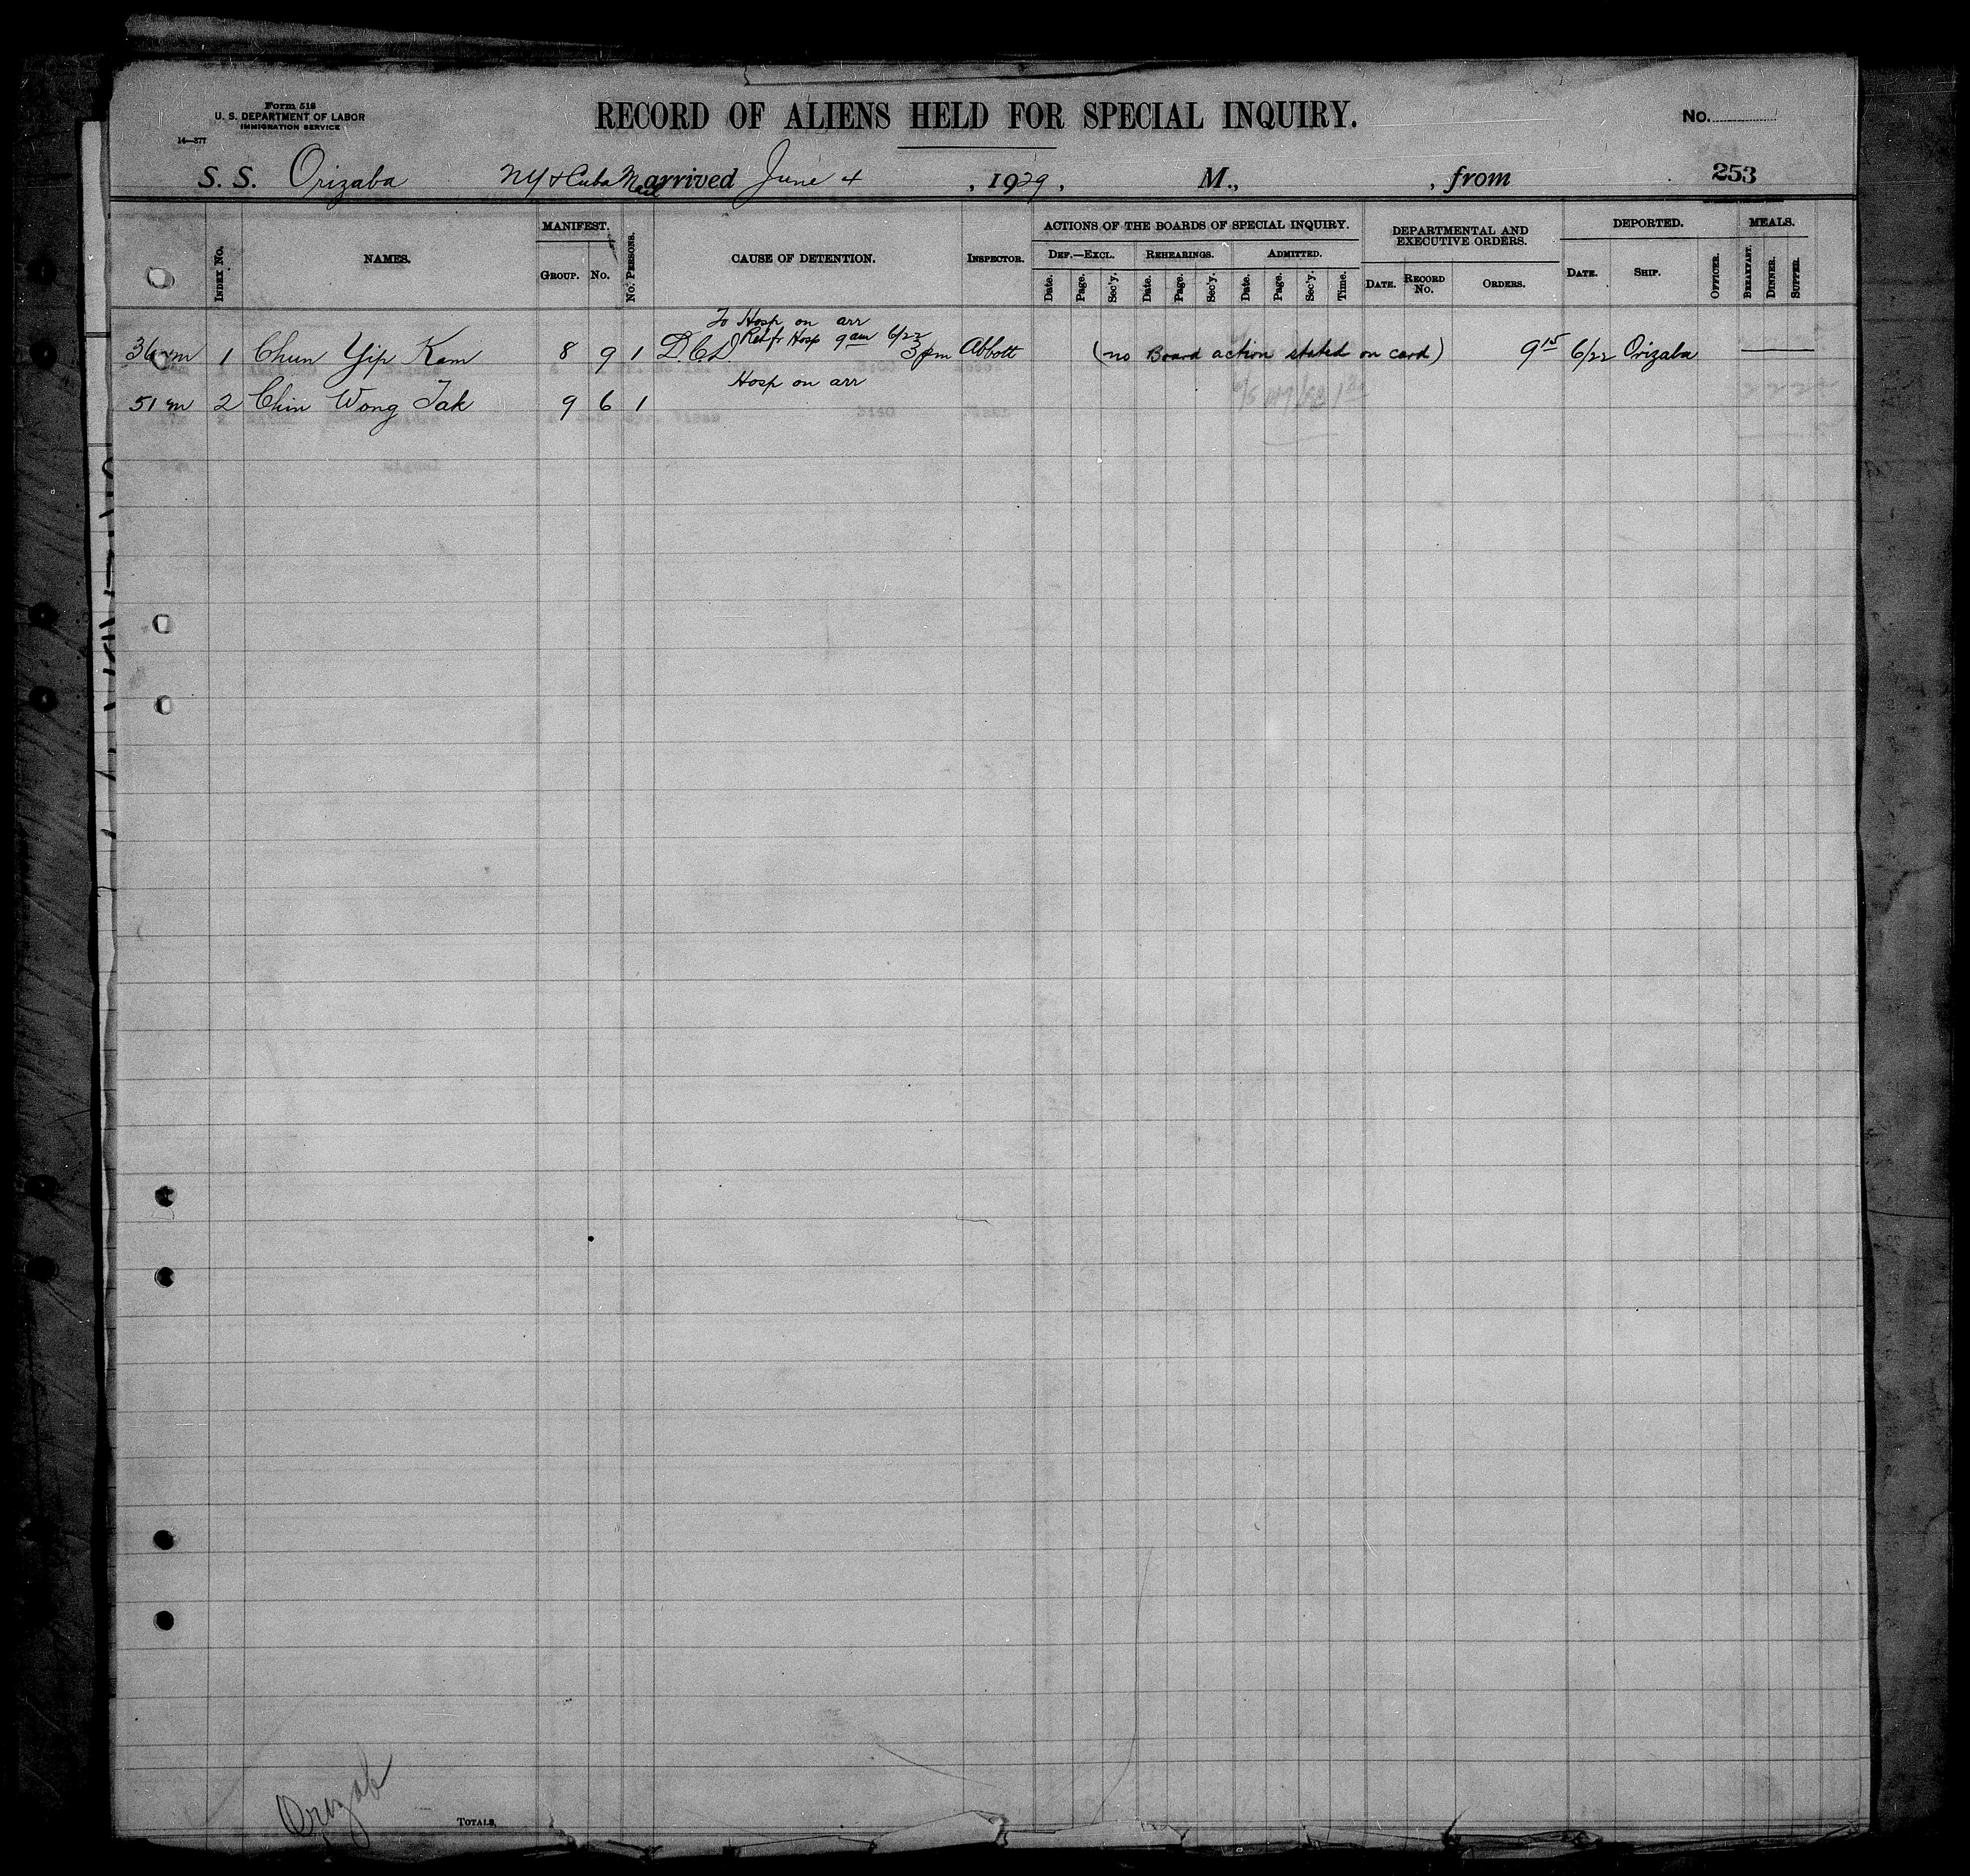 Form 518
U. S. DEPARTMENT OF LABOR
IMMIGRATION SERVICE
14—377
RECORD OF ALIENS HELD FOR SPECIAL INQUIRY.
No.
253
S. S. Orizaba NY & Cuba Mail arrived June 4, 1929, M., , from
INDEX No.
NAMES.
MANIFEST.
GROUP. No.
No. PERSONS.
CAUSE OF DETENTION.
INSPECTOR.
ACTIONS OF THE BOARDS OF SPECIAL INQUIRY.
DEF.—EXCL. REHEARINGS. ADMITTED.
Date. Page. Sec'y. Date. Page. Sec'y. Date. Page. Sec'y. Time.
DEPARTMENTAL AND EXECUTIVE ORDERS.
DATE. RECORD No. ORDERS.
DEPORTED.
DATE. SHIP. OFFICER.
MEALS.
BREAKFAST. DINNER. SUPPER.
To Hosp on arr
Ret fr Hosp 9 am 6/22
36 m 1 Chun Yip Kam 8 9 1 3 pm Abbott (no Board action stated on card) 9 15 6/22 Orizaba
Hosp on arr
51 m 2 Chin Wong Tak 9 6 1
Orizab
TOTALS,